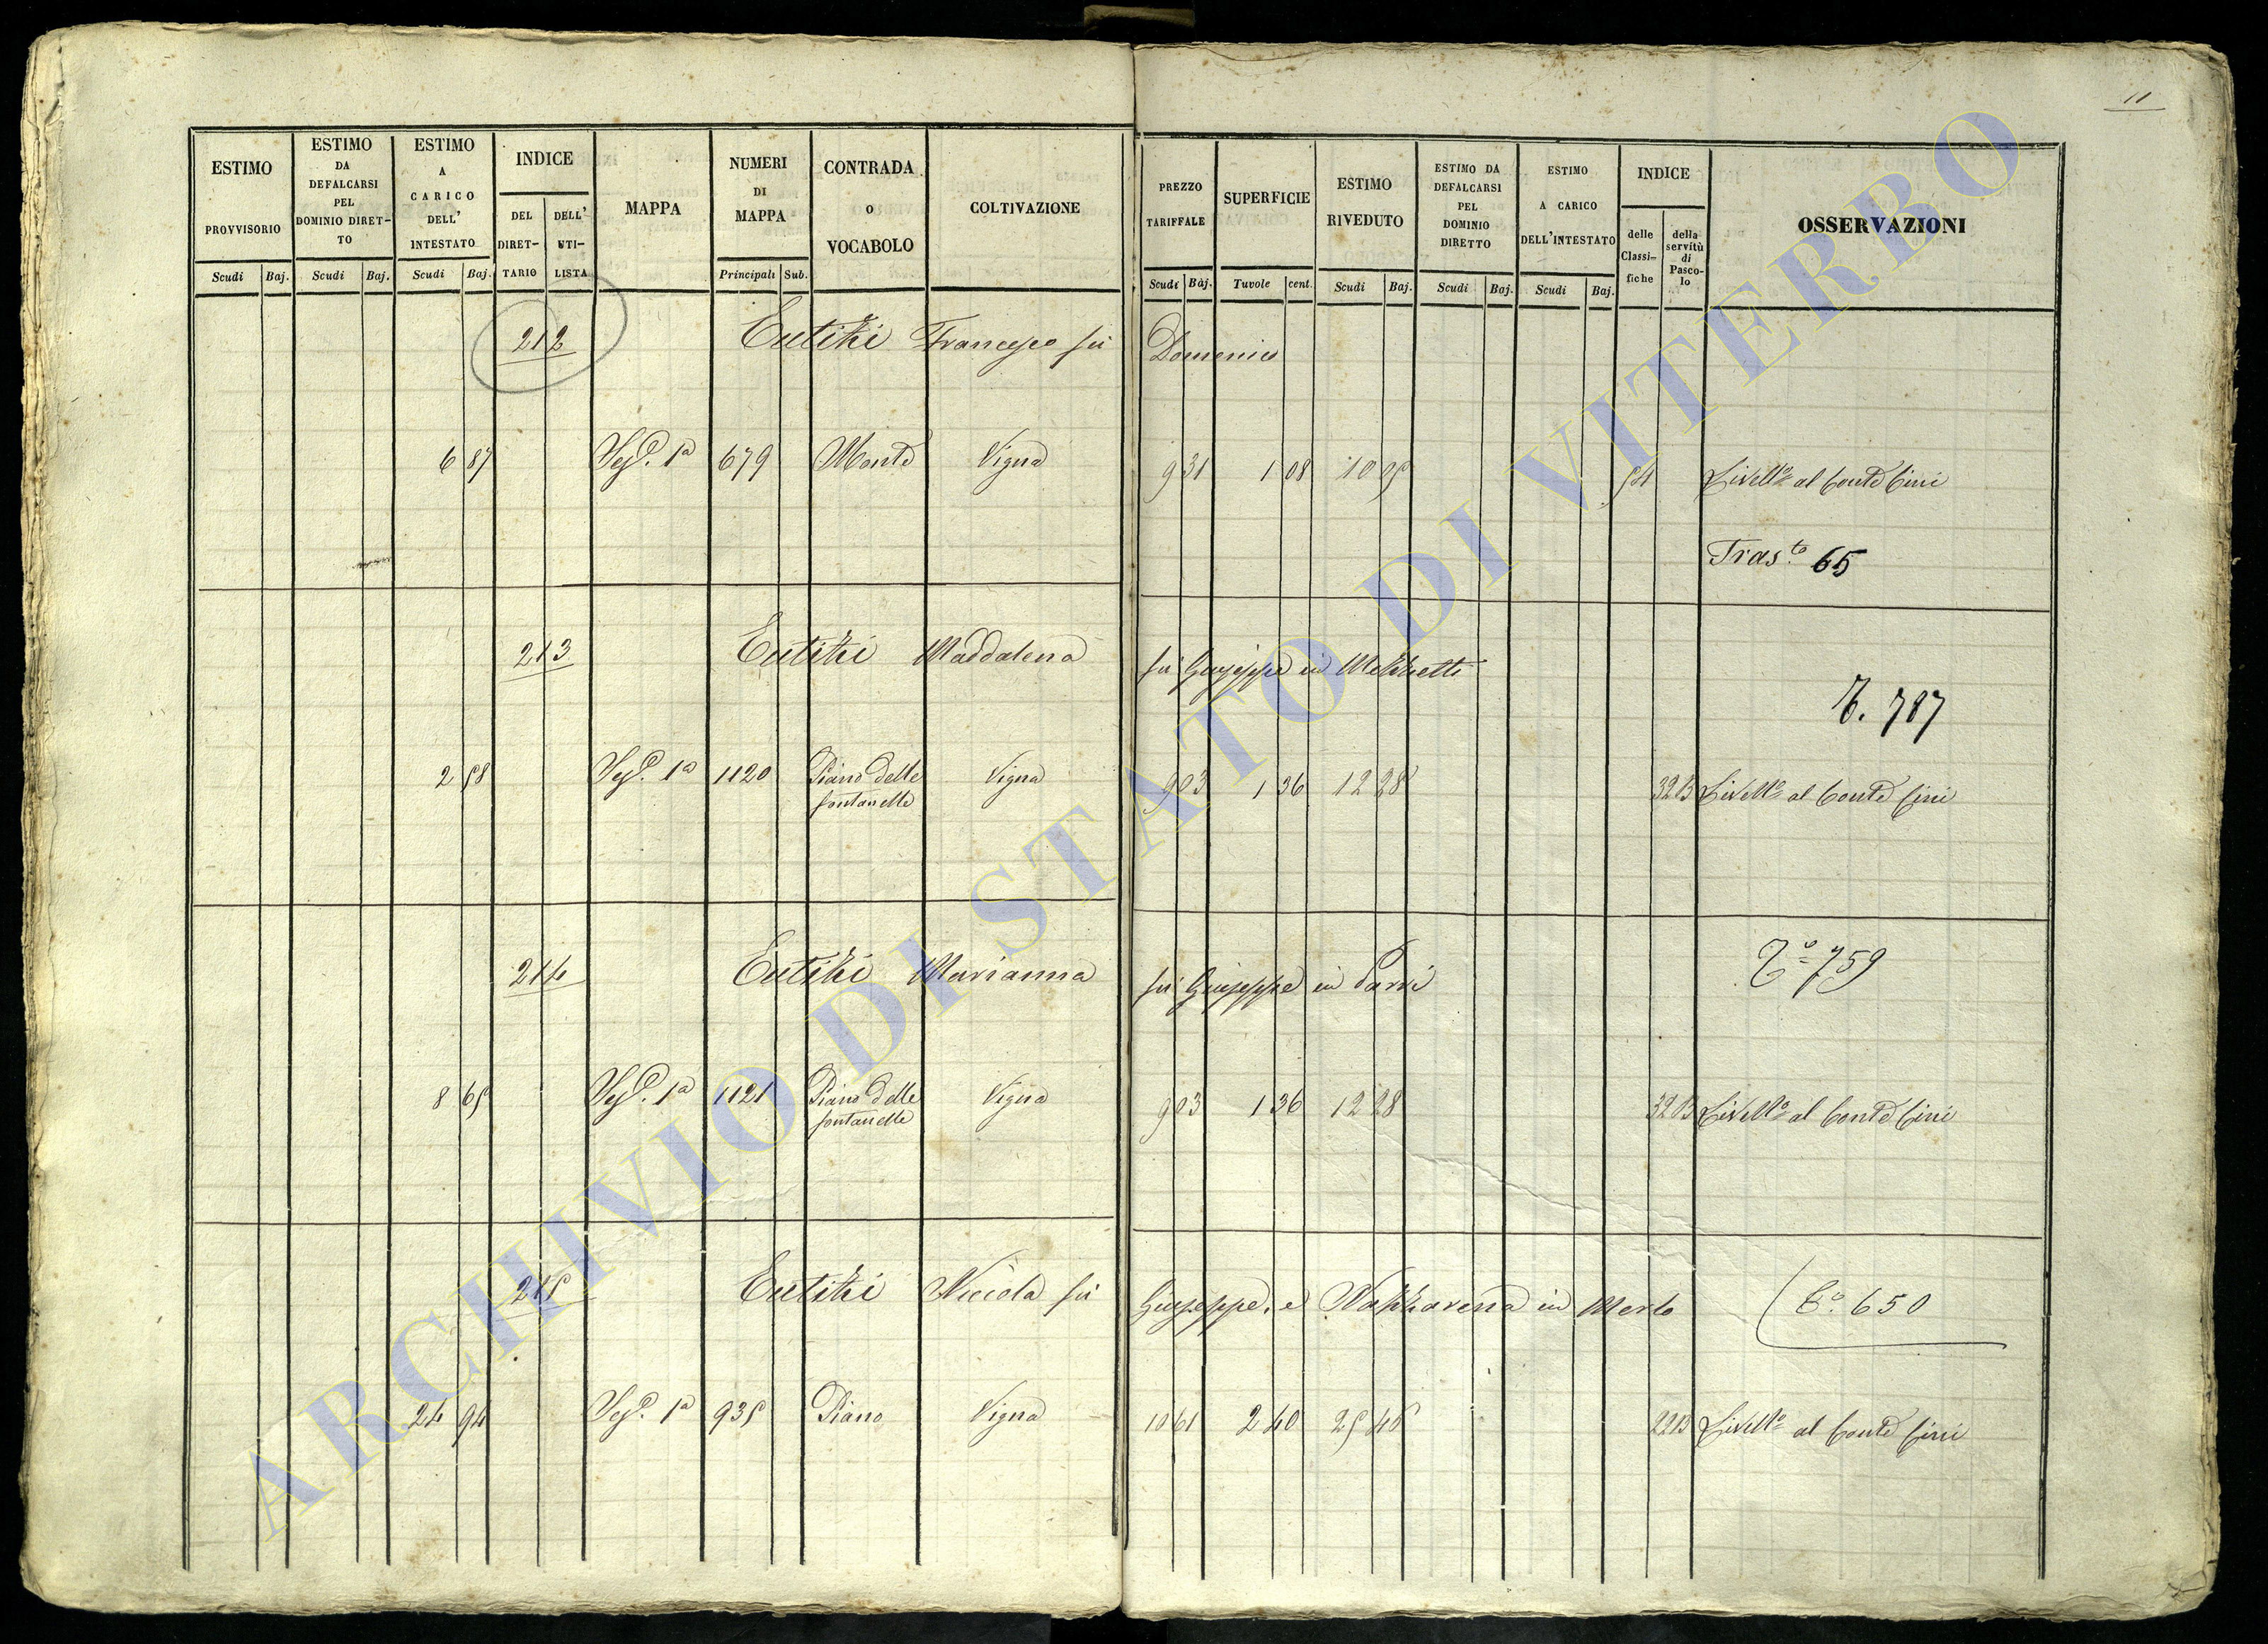 11
ESTIMO PROVVISORIO Scudi Baj.
ESTIMO DA DEFALCARSI PEL DOMINIO DIRET-TO Scudi Baj.
ESTIMO A CARICO DELL' INTESTATO Scudi Baj.
INDICE DEL DIRET-TARIO DELL' UTI-LISTA
MAPPA
NUMERI DI MAPPA Principali Sub.
CONTRADA O VOCABOLO
COLTIVAZIONE
PREZZO TARIFFALE Scudi Baj.
SUPERFICIE Tavole cent.
ESTIMO RIVEDUTO Scudi Baj.
ESTIMO DA DEFALCARSI PEL DOMINIO DIRETTO Scudi Baj.
ESTIMO A CARICO DELL'INTESTATO Scudi Baj.
INDICE delle Classi-fiche della servitù di Pasco-lo
OSSERVAZIONI
212 Eutizi Francesco fu Domenico
6 87 Sez.e 1a 679 Monte Vigna 9 31 1 08 10 05 54 Livell.o al Conte Cini
Tras.to 65
213 Eutizi Maddalena fu Giuseppe in Mezzetti
T. 787
2 58 Sez.e 1a 1120 Piano delle fontanelle Vigna 9 03 1 36 12 28 32 B Livell.o al Conte Cini
214 Eutizi Marianna fu Giuseppe in Parri
T.o 759
8 65 Sez.e 1a 1121 Piano delle fontanelle Vigna 9 03 1 36 12 28 32 B Livell.o al Conte Cini
215 Eutizi Niccola fu Giuseppe, e Nazzarena in Merlo
T.o 650
24 94 Sez.e 1a 935 Piano Vigna 10 61 2 40 25 46 22 B Livell.o al Conte Cini
ARCHIVIO DI STATO DI VITERBO